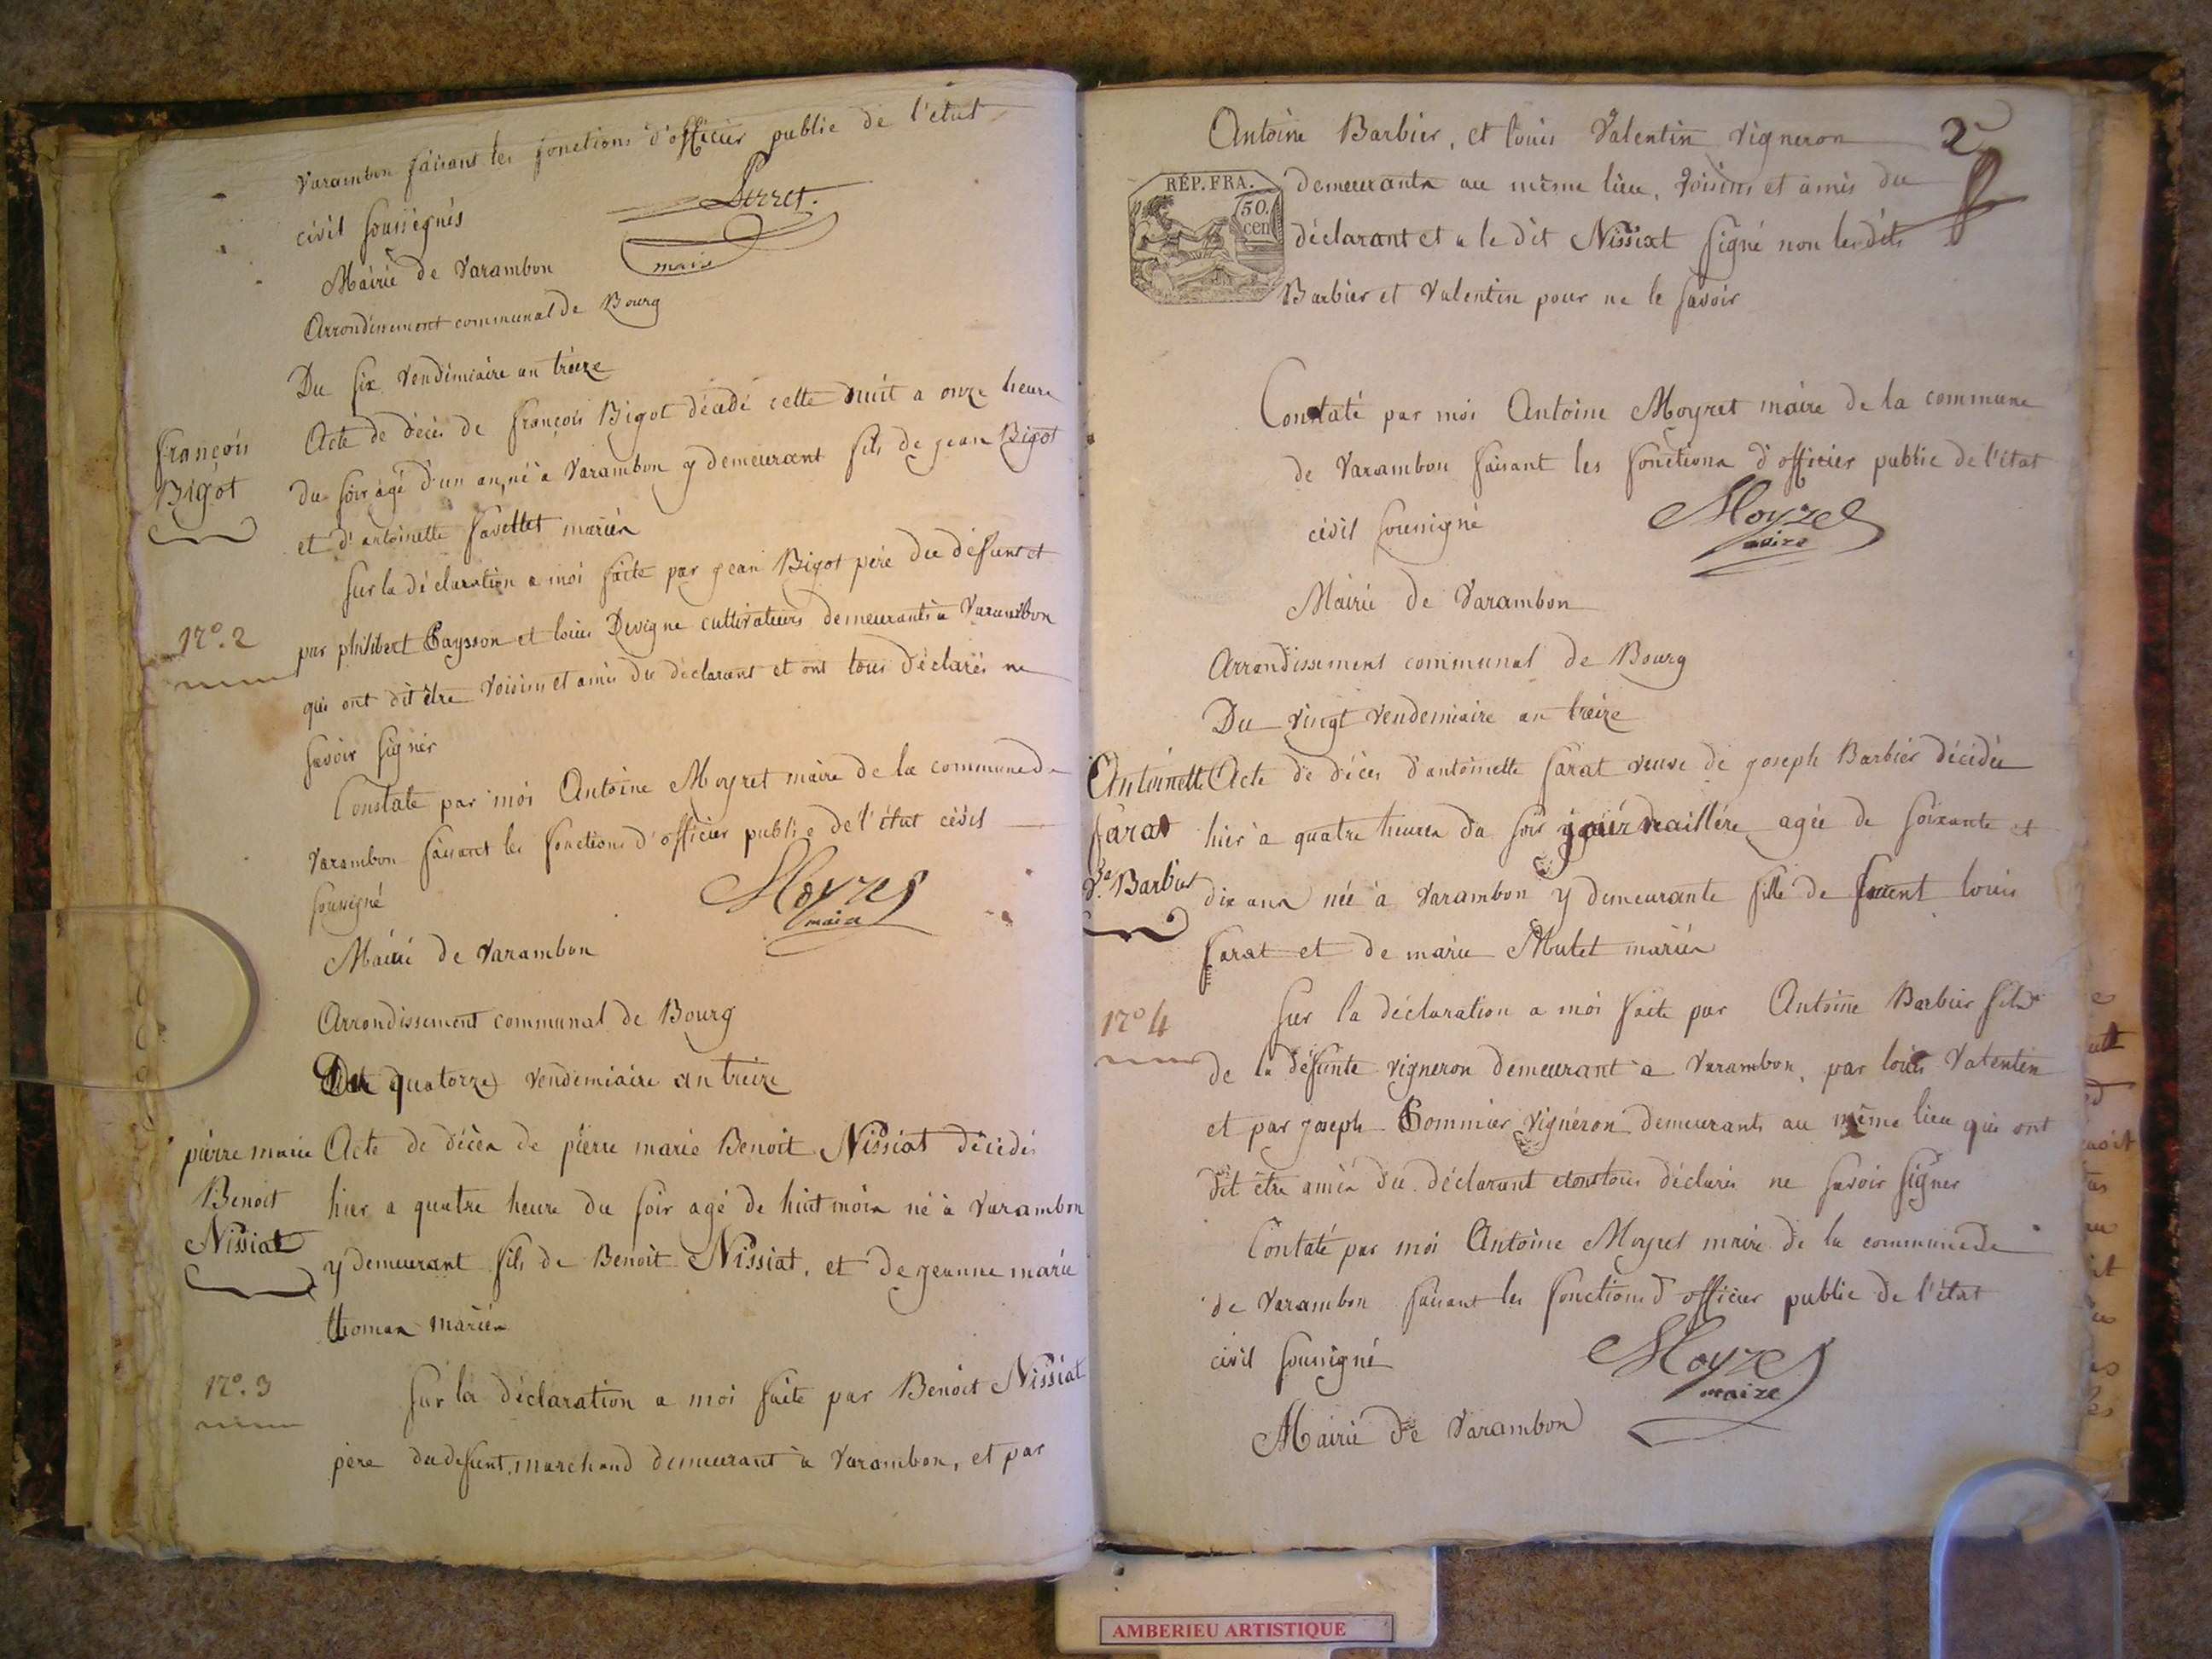 Varambon faisant les fonctions d'officier public de l'état
civil soussignés
Perret.
maire
Mairie de Varambon
Arrondissement communal de Bourg
Du six Vendémiaire an treize
françois
Bigot
Acte de décès de françois Bigot décédé cette nuit a onze heure
du soir agé d'un an, né à Varambon y demeurant fils de jean Bigot
et d'antoinette favettet mariés
N°. 2
Sur la déclaration a moi faite par jean Bigot père du défunt et
par philibert Paysson et louis Devigne cultivateurs demeurants à Varambon
qui ont dit être voisins et amis du déclarant et ont tous déclarés ne
savoir signer
Constaté par moi Antoine Moyret maire de la commune de
Varambon faisant les fonctions d'officier public de l'état civil
soussigné
Moyret
maire
Mairie de Varambon
Arrondissement communal de Bourg
Du quatorze vendemiaire an treize
pierre marie
Benoit
Nissiat
Acte de décès de pierre marie Benoit Nissiat décédé
hier a quatre heure du soir agé de huit mois né à Varambon
y demeurant fils de Benoit Nissiat, et de jeanne marie
thomas mariés
N°. 3
Sur la déclaration a moi faite par Benoit Nissiat
père du defunt, marchand demeurant à Varambon, et par
2
Antoine Barbier, et louis Valentin vigneron
RÉP. FRA.
50.
cen
demeurants au même lieu, voisins et amis du
déclarant et a le dit Nissiat signé non les dits
Barbier et Valentin pour ne le savoir
Constaté par moi Antoine Moyret maire de la commune
de Varambon faisant les fonctions d'officier public de l'état
civil soussigné
Moyret
maire
Mairie de Varambon
Arrondissement communal de Bourg
Du vingt vendemiaire an treize
Antoinette
farat
Barbier
Acte de décès d'antoinette farat veuve de joseph Barbier décédée
hier à quatre heures du soir agée de soixante et
dix ans née à Varambon y demeurante fille de louis
farat et de marie Mutet mariés
N° 4
Sur la déclaration a moi faite par Antoine Barbier fils
de la défunte vigneron demeurant à Varambon, par louis Valentin
et par joseph Pommier vigneron demeurants au même lieu qui ont
dit être amis du déclarant et ont tous déclarés ne savoir signer
Contaté par moi Antoine Moyret maire de la commune de
de Varambon faisant les fonctions d'officier public de l'état
civil soussigné
Moyret
maire
Mairie de Varambon
AMBERIEU ARTISTIQUE